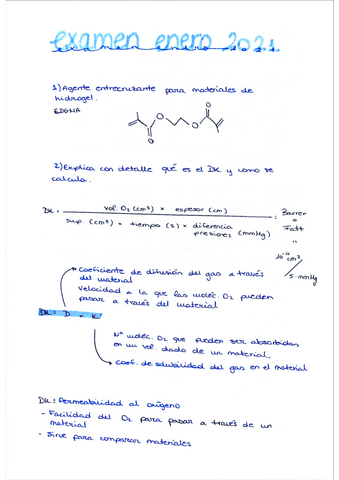 examen enero 2021
1) Agente entrecruzante para materiales de
hidrogel.
EDGMA
O
O
O
O
2) Explica con detalle qué es el DK y como se
calcula.
DK = vol. O2 (cm³) × espesor (cm)
sup. (cm²) × tiempo (s) × diferencia
presiones (mmHg)
= Barrer
o
Fatt
"
10⁻¹¹ cm²/
s. mmHg
Coeficiente de difusión del gas a través
del material
velocidad a la que las moléc. O2 pueden
pasar a través del material
DK = D . K
Nº moléc. O2 que pueden ser absorbidas
en un vol. dado de un material
Coef. de solubilidad del gas en el material
DK = Permeabilidad al oxígeno
- Facilidad del O2 para pasar a través de un
material
- Sirve para comparar materiales